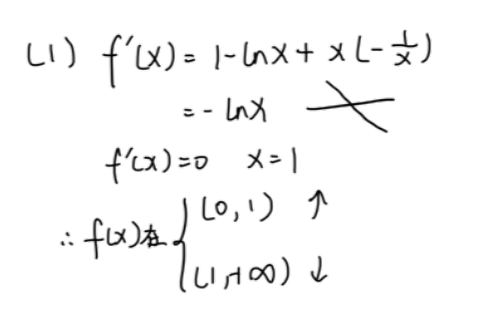 (1) f'(x)=1-lnx+x(-1/x)
=-lnx
f'(x)=0 x=1
∴f(x)在{(0,1)↑
(1,+∞)↓